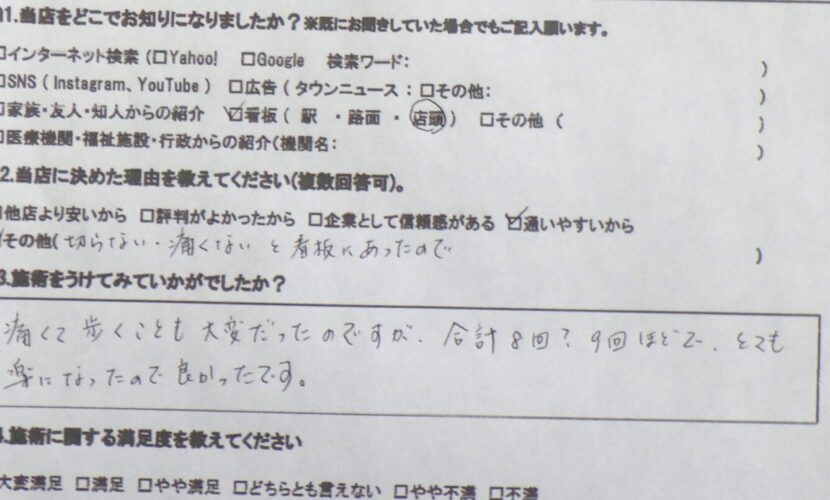 1.当店をどこでお知りになりましたか？※既にお聞きしていた場合でもご記入願います。
□インターネット検索（□Yahoo!　□Google　検索ワード：　）
□SNS（Instagram、YouTube）　□広告（タウンニュース：□その他：　）
□家族・友人・知人からの紹介　☑看板（ 駅 ・路面・店頭）　□その他（　）
□医療機関・福祉施設・行政からの紹介（機関名：　）
2.当店に決めた理由を教えてください(複数回答可)。
□他店より安いから　□評判がよかったから　□企業として信頼感がある　☑通いやすいから
その他（切らない・痛くない と 看板にあったので　）
3.施術をうけてみていかがでしたか？
痛くて歩くことも大変だったのですが、合計8回？9回ほどで、とても
楽になったので良かったです。
4.施術に関する満足度を教えてください
大変満足　□満足　□やや満足　□どちらとも言えない　□やや不満　□不満